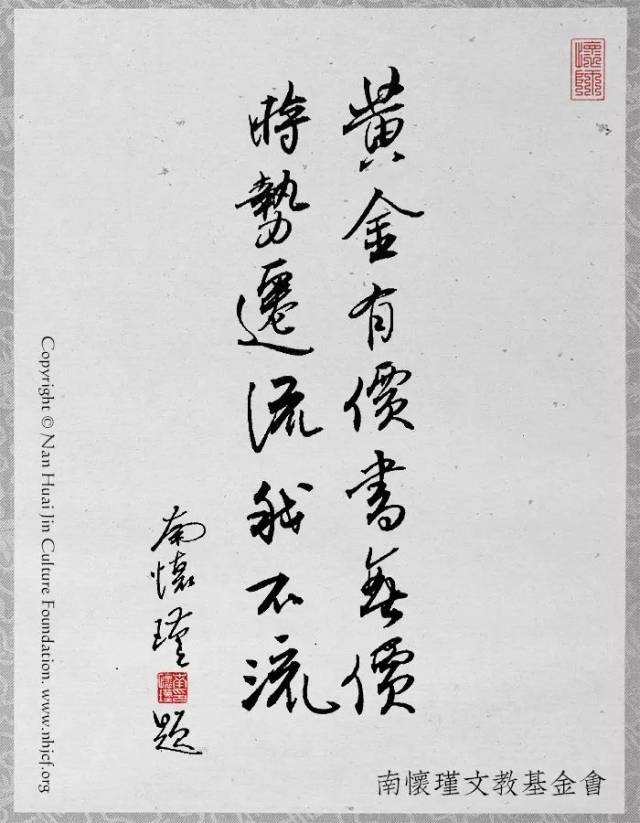 黃金有價書無價
時勢遷流我不流
南懷瑾題
南懷瑾文教基金會
Copyright © Nan Huai Jin Culture Foundation. www.nhjcf.org